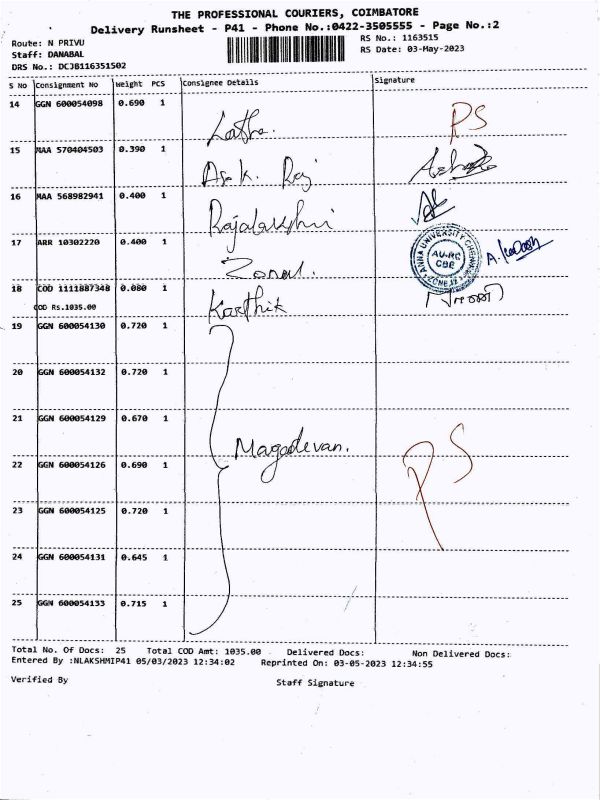 THE PROFESSIONAL COURIERS, COIMBATORE
Delivery Runsheet - P41 - Phone No.:0422-3505555 - Page No.:2
Route: N PRIVU
RS No.: 1163515
Staff: DANABAL
RS Date: 03-May-2023
DRS No.: DCJB116351502
S No Consignment No Weight PCS Consignee Details Signature
14 GGN 600054098 0.690 1 Latha. PS
15 MAA 570404503 0.390 1 Raj
16 MAA 568982941 0.400 1 Rajalakshmi
17 ARR 10302220 0.400 1 Zonal.
ANNA UNIVERSITY CHENNAI
AU-RC
CBE
18 COD 1111887348 0.080 1 Karthik
COD Rs.1035.00
19 GGN 600054130 0.720 1
20 GGN 600054132 0.720 1
21 GGN 600054129 0.670 1
Magadevan. PS
22 GGN 600054126 0.690 1
23 GGN 600054125 0.720 1
24 GGN 600054131 0.645 1
25 GGN 600054133 0.715 1
Total No. Of Docs: 25 Total COD Amt: 1035.00 Delivered Docs: Non Delivered Docs:
Entered By :NLAKSHMIP41 05/03/2023 12:34:02 Reprinted On: 03-05-2023 12:34:55
Verified By Staff Signature